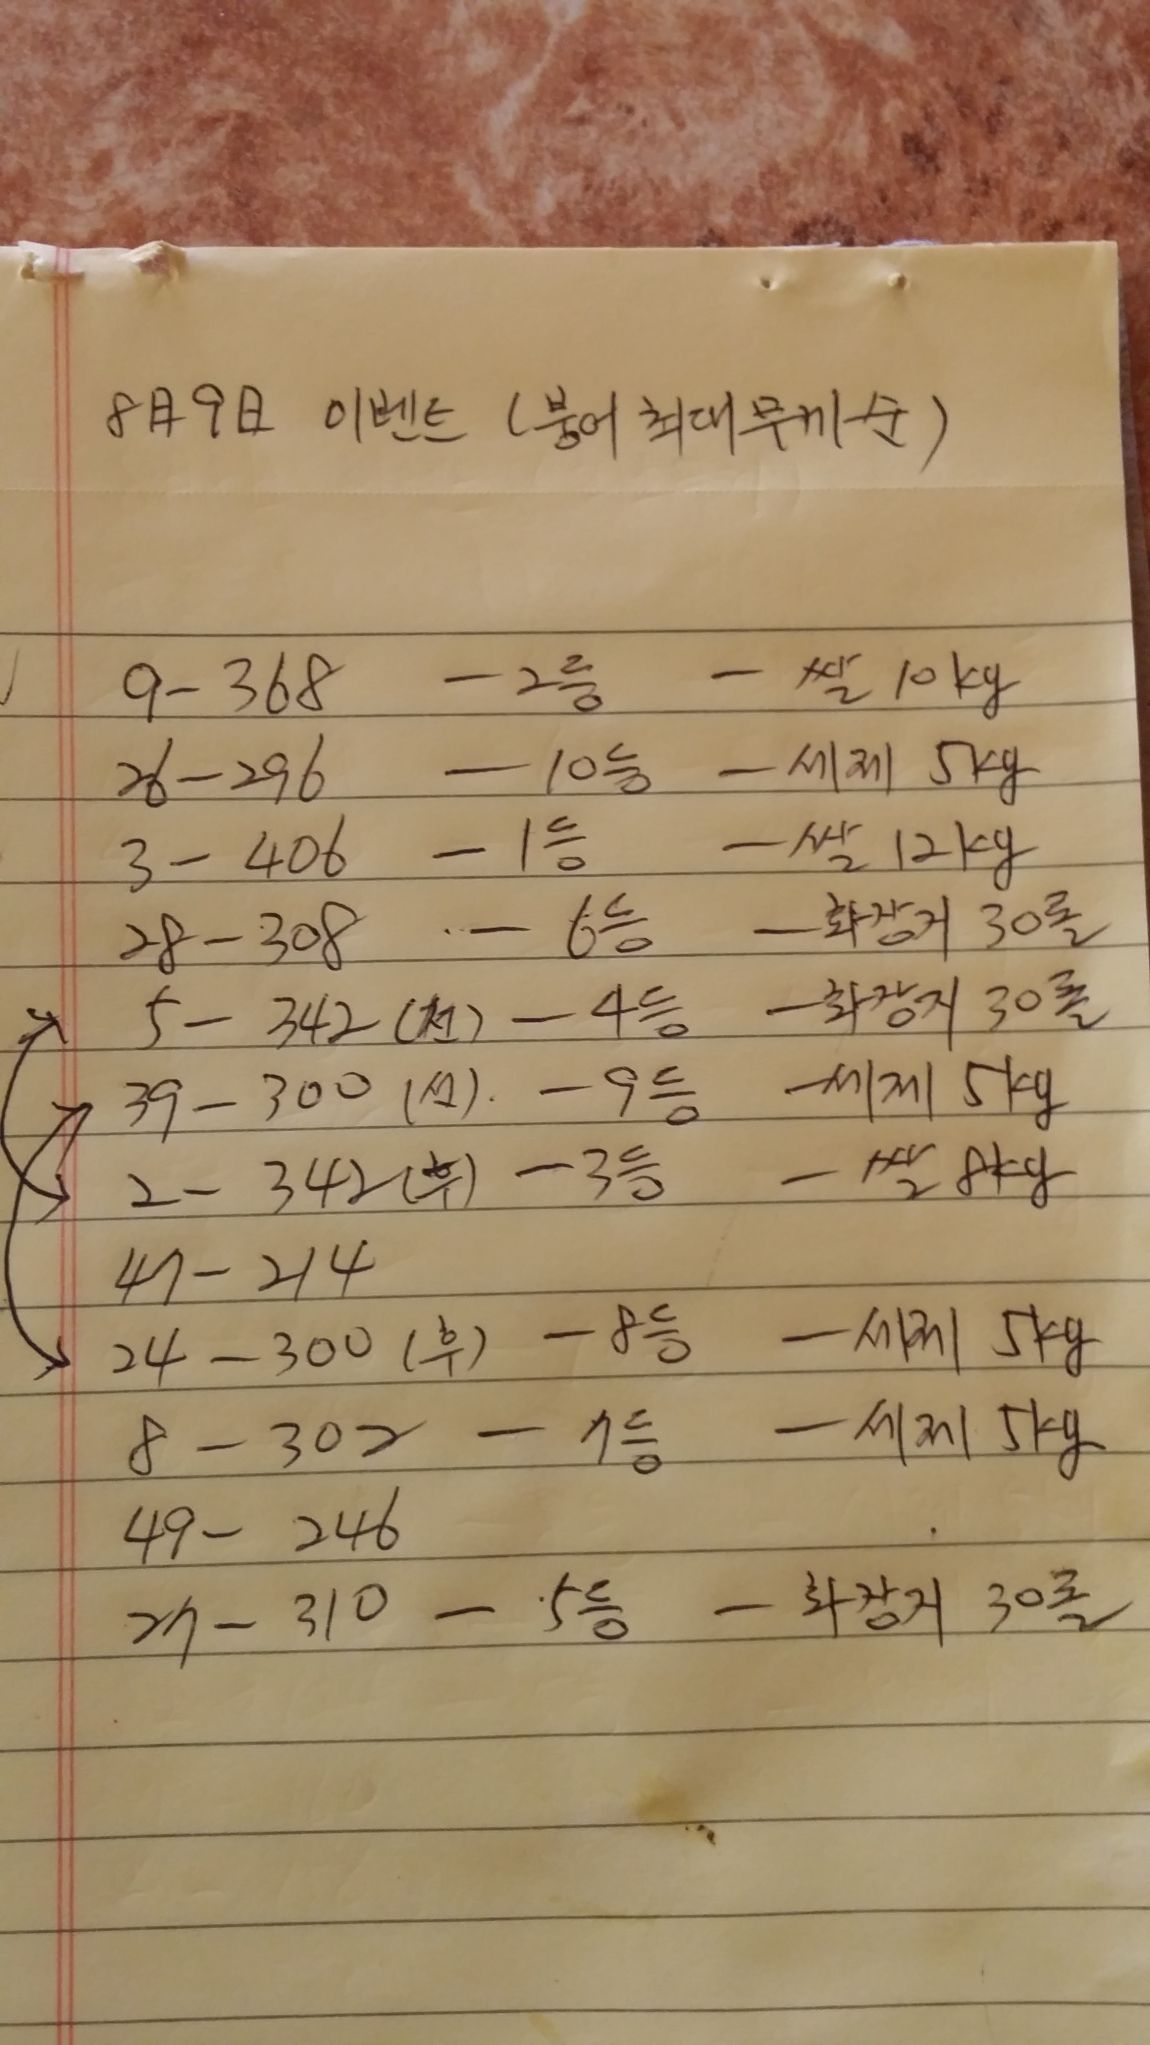 8月9日 이벤트 (붕어 최대무게순)
9-368 -2등 - 쌀 10kg
26-296 -10등 -세제 5kg
3-406 -1등 -쌀 12kg
28-308 -6등 -화장지 30롤
5-342(선) -4등 -화장지 30롤
39-300(선). -9등 -세제 5kg
2-342(후) -3등 -쌀 8kg
47-214
24-300(후) -8등 -세제 5kg
8-302 -7등 -세제 5kg
49-246
27-310 -5등 -화장지 30롤